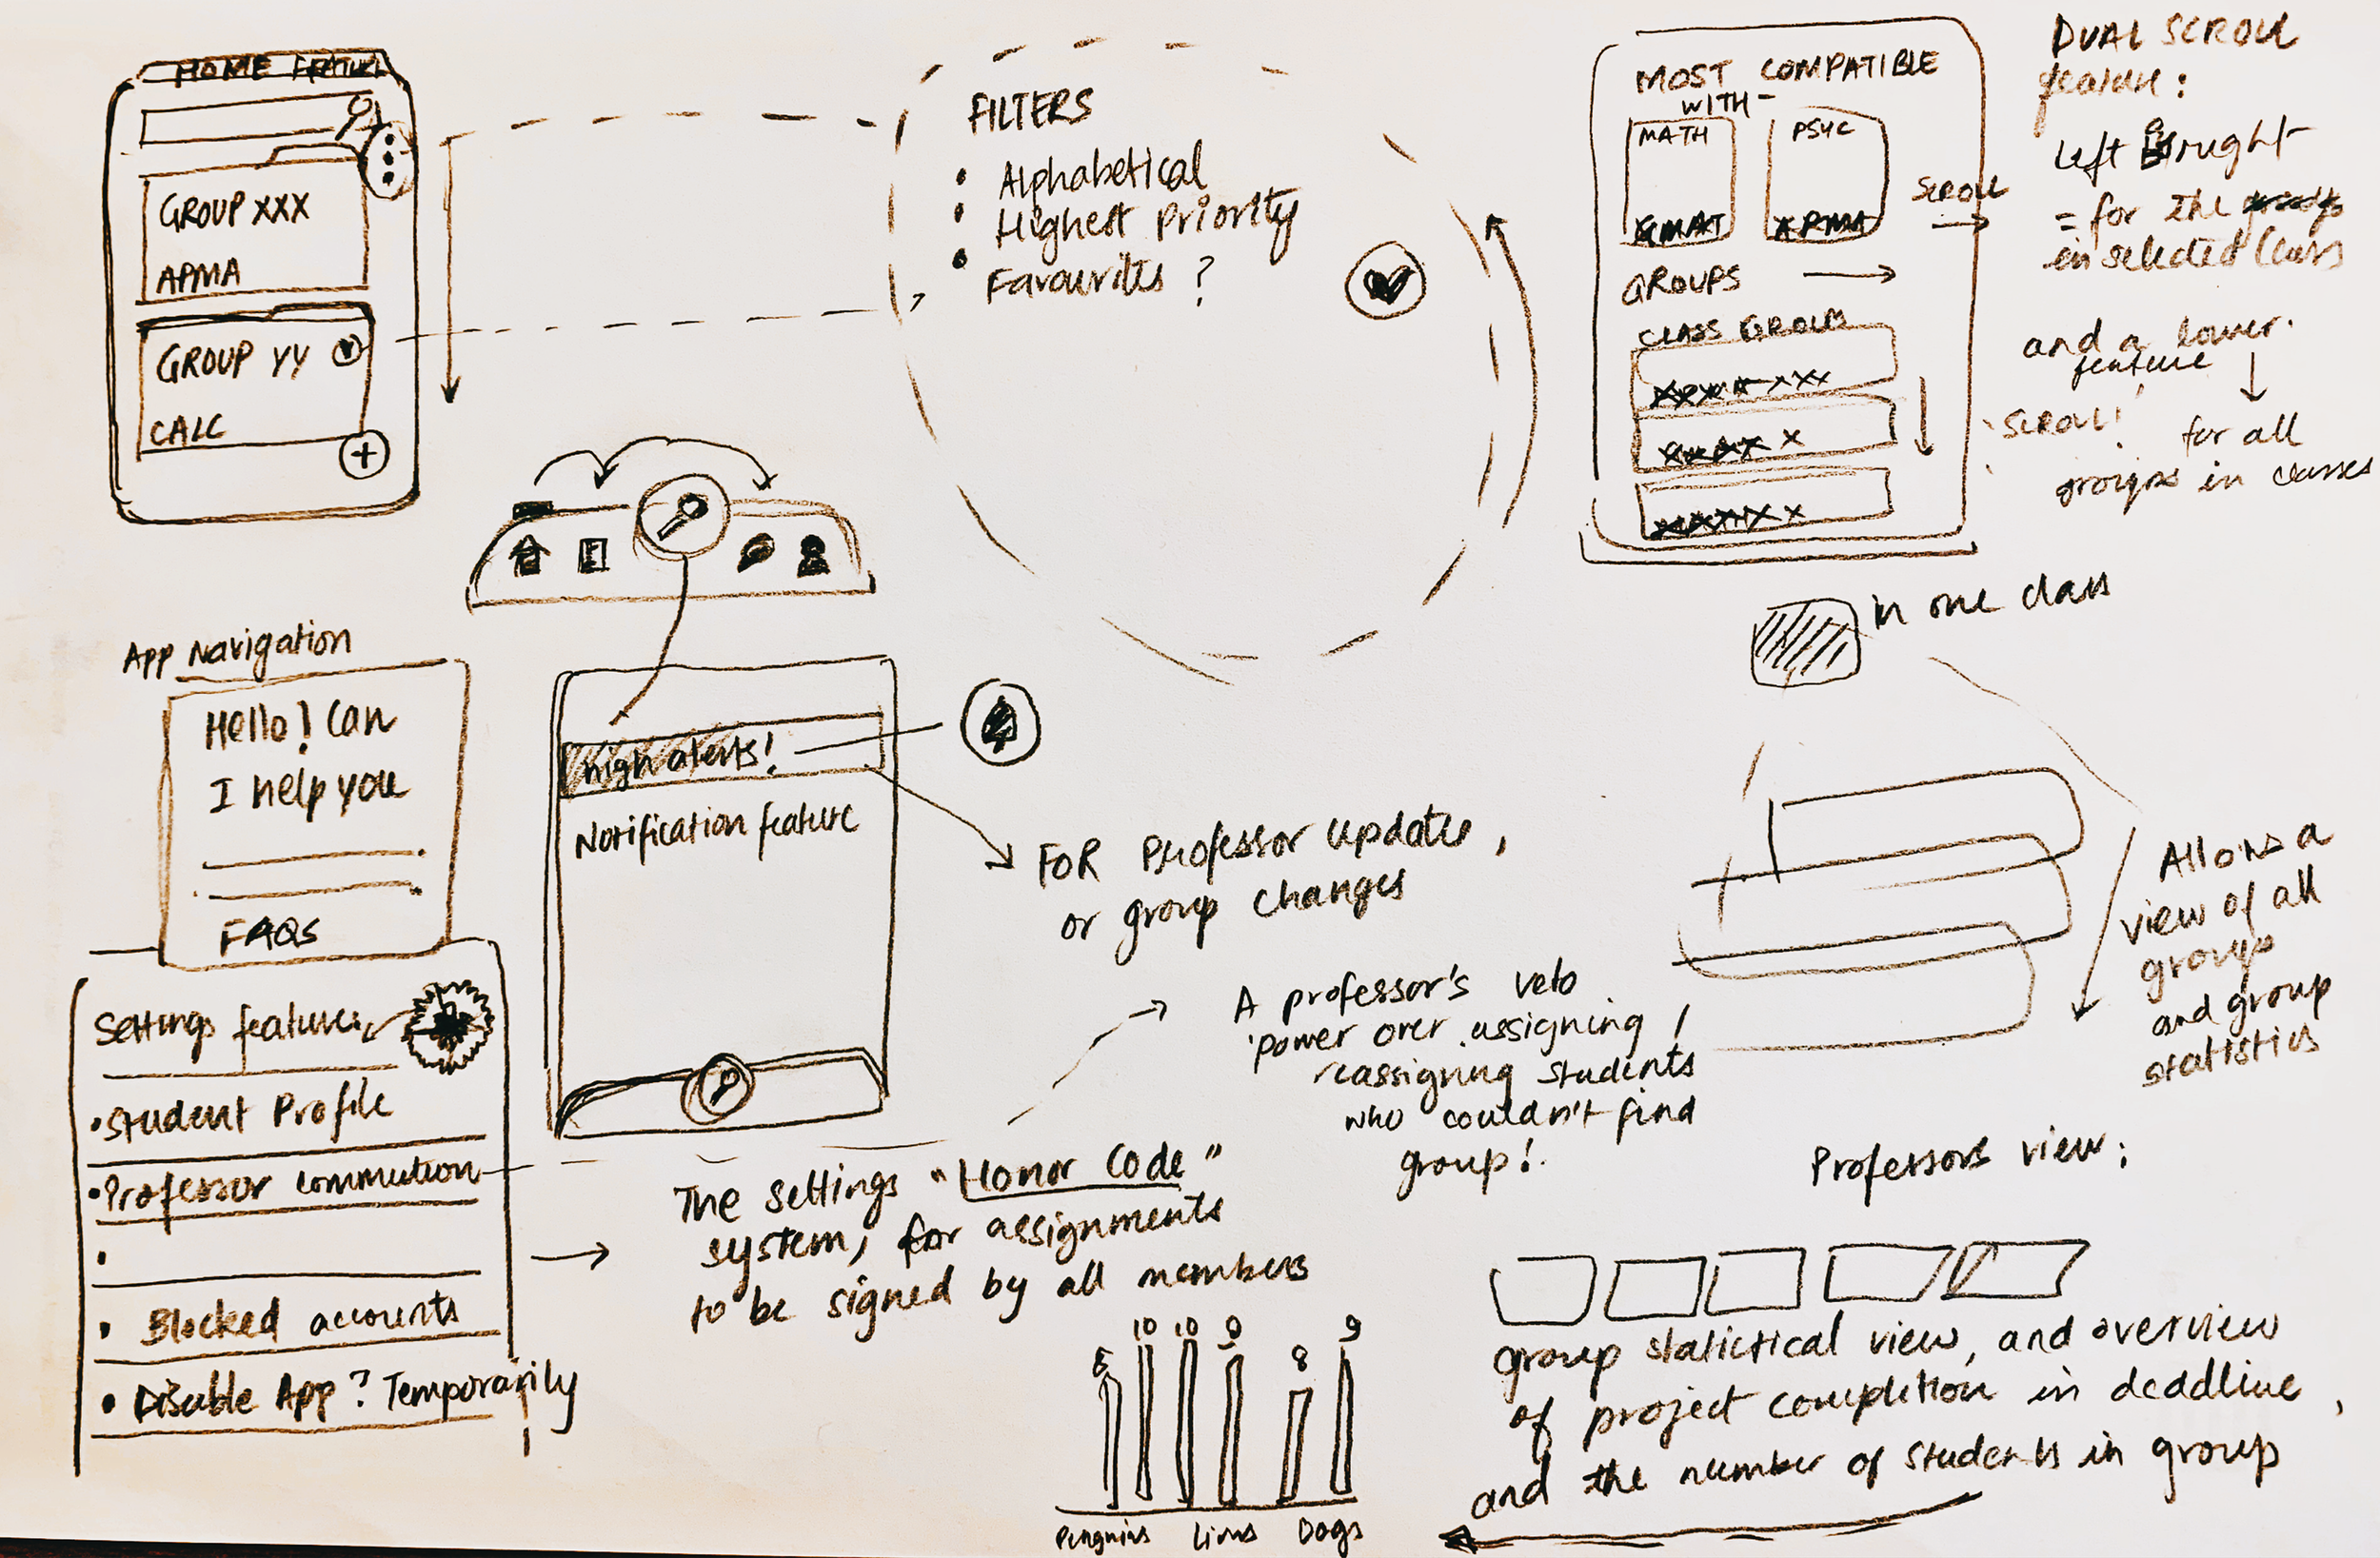 HOME FEATURE
GROUP XXX
APMA
GROUP YY
CALC
+
FILTERS
• Alphabetical
• Highest Priority
• Favourites ?
MOST COMPATIBLE
WITH-
MATH
PSYC
APMA
SCROLL
GROUPS
CLASS GROUPS
DUAL SCROLL
feature :
left right
= for the
in selected class
and a lower
feature
SCROLL!
for all
groups in classes
in one class
App Navigation
Hello! Can
I help you
FAQS
high alerts!
Notification feature
FOR Professor update,
or group changes
Settings features
• Student Profile
• Professor
•
• Blocked accounts
• Disable App? Temporarily
A professor's veto
power over assigning /
reassigning students
who couldn't find
group!
The settings "Honor Code"
system, for assignments
to be signed by all members
10 10 9 8 9
Penguins Lions Dogs
Allows a
view of all
groups
and group
statistics
Professors view:
group statictical view, and overview
of project completion in deadline,
and the number of students in group